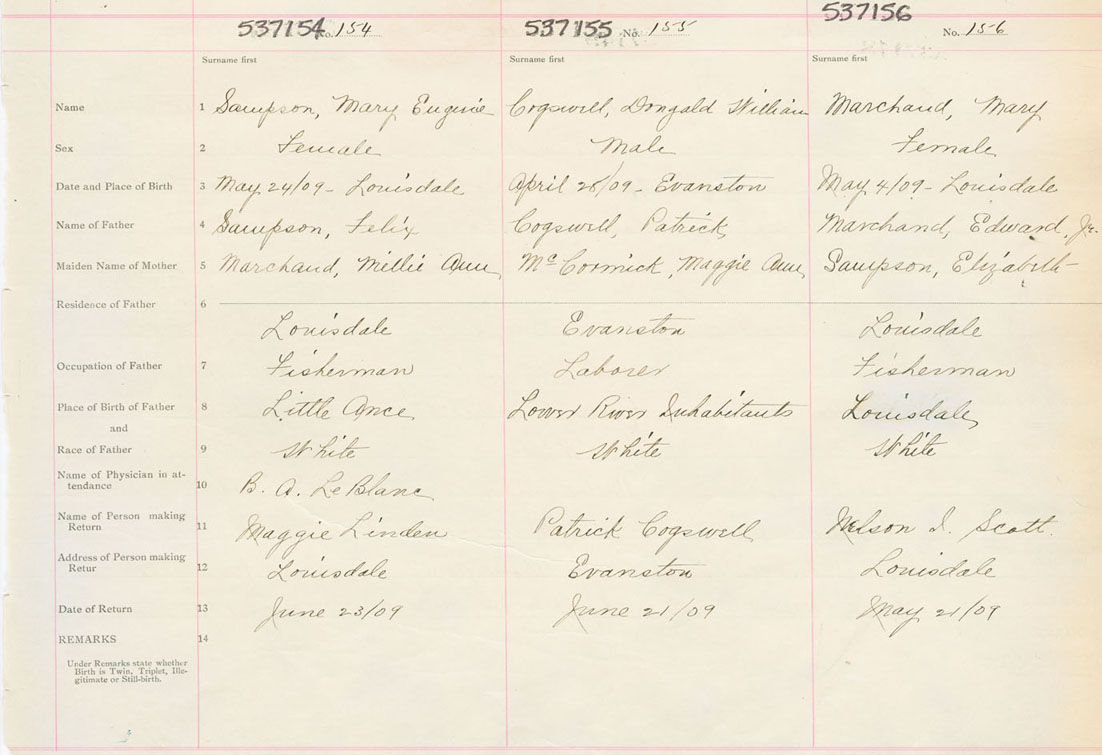 537154 No. 154 537155 No. 155 537156 No. 156
Surname first Surname first Surname first
Name 1 Sampson, Mary Eugenie Cogswell, Dongald William Marchand, Mary
Sex 2 Female Male Female
Date and Place of Birth 3 May 24/09 - Louisdale April 28/09 - Evanston May 4/09 - Louisdale
Name of Father 4 Sampson, Felix Cogswell, Patrick Marchand, Edward, Jr.
Maiden Name of Mother 5 Marchand, Millie Ann McCormick, Maggie Ann Sampson, Elizabeth
Residence of Father 6
Louisdale Evanston Louisdale
Occupation of Father 7 Fisherman Laborer Fisherman
Place of Birth of Father 8 Little Ance Lower River Inhabitants Louisdale
and
Race of Father 9 White White White
Name of Physician in at-
tendance 10 B. A. LeBlanc
Name of Person making
Return 11 Maggie Linden Patrick Cogswell Nelson I. Scott.
Address of Person making
Retur 12 Louisdale Evanston Louisdale
Date of Return 13 June 23/09 June 21/09 May 21/09
REMARKS 14
Under Remarks state whether
Birth is Twin. Triplet, Ille-
gitimate or Still-birth.